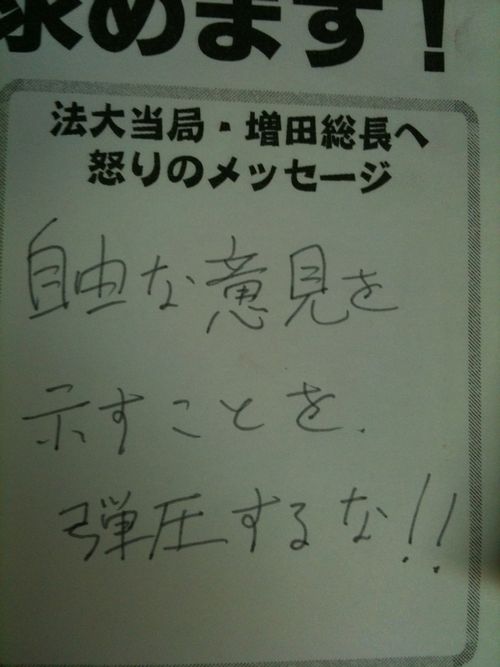 求めます!
法大当局・増田総長へ
怒りのメッセージ
自由な意見を
示すことを、
弾圧するな!!